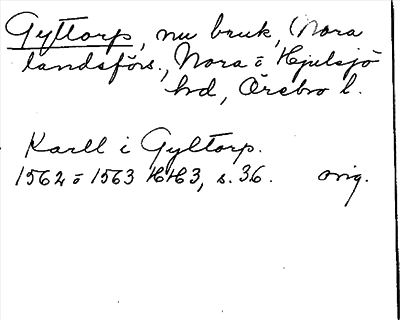 Gyttorp, nu bruk, (Nora
landsförs., Nora o Hjulsjö
hd, Örebro l.
Karll i Gyltorp.
1562 o 1563 HH3, s. 36. orig.